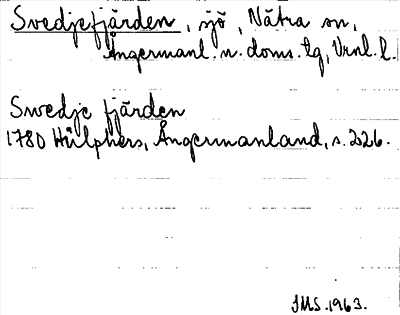 Svedjefjärden, sjö, Nätra sn,
Ångermanl. n. doms. tg, Vrnl. l.
Swedje fjärden
1780 Hülphers, Ångermanland, s. 226.
JMS. 1963.